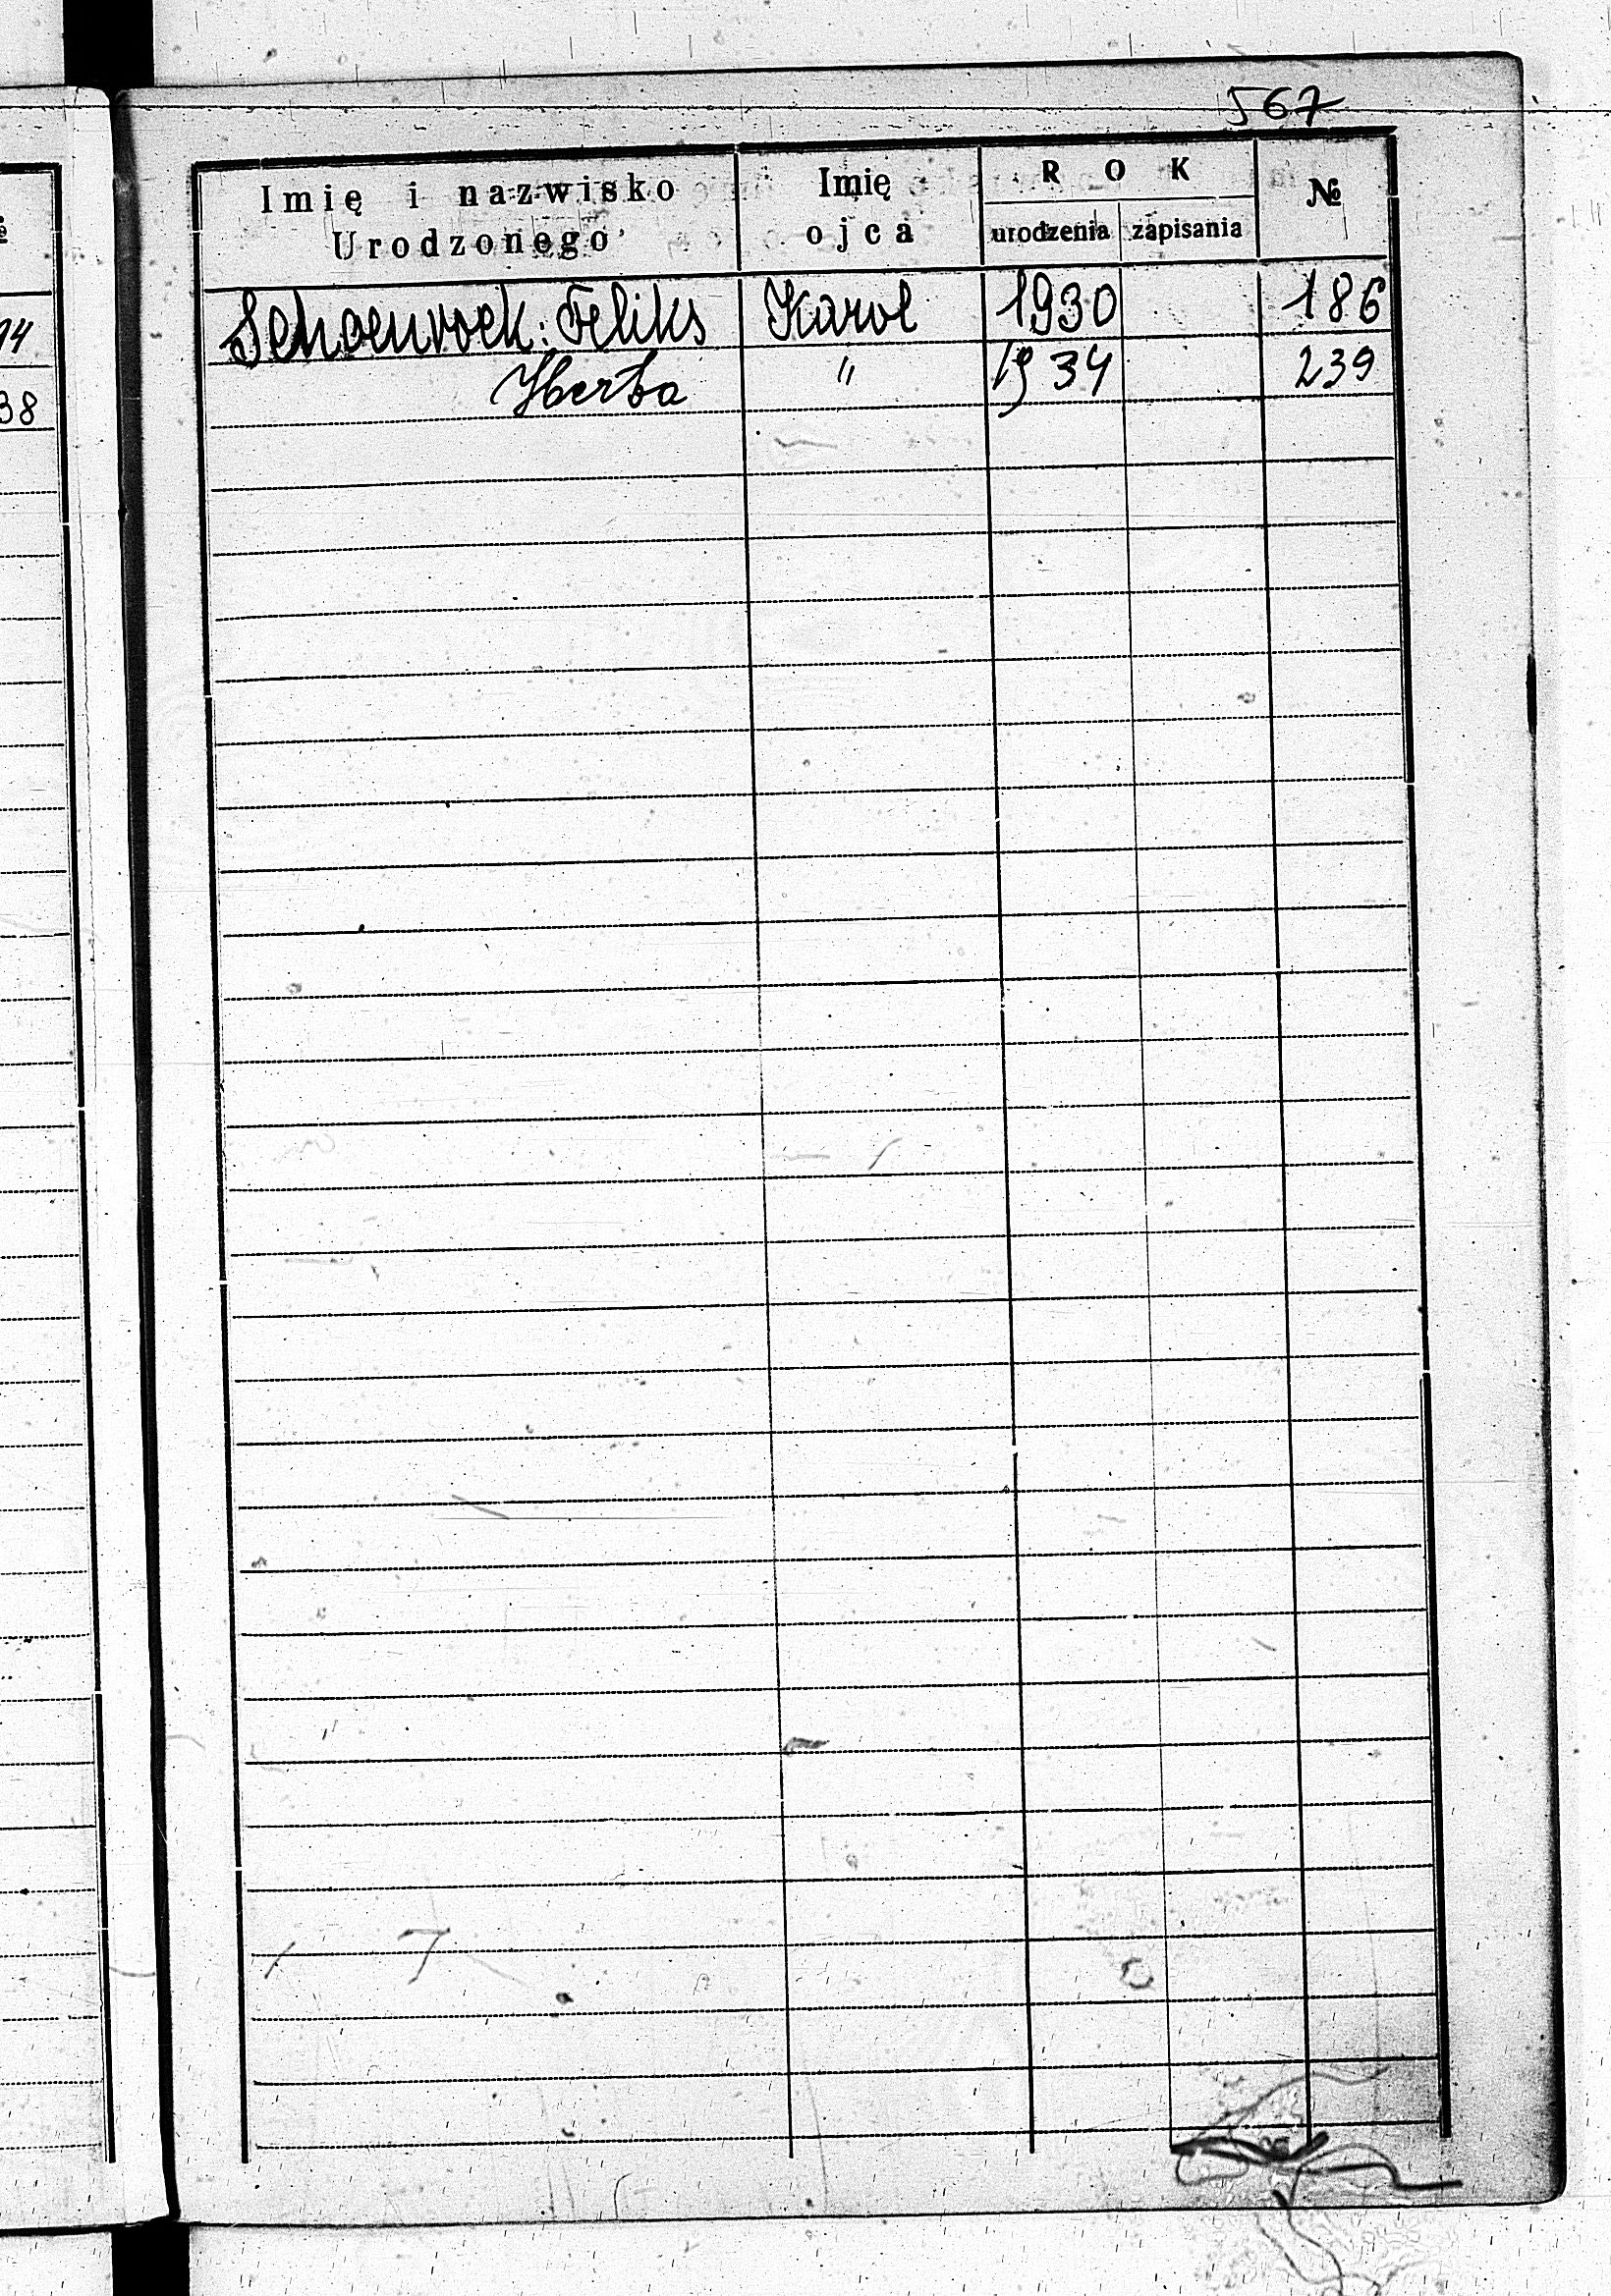 567
Imię i nazwisko Urodzonego Imię ojca ROK urodzenia zapisania №
Schoenrock: Feliks Karol 1930 186
Herta " 1934 239
14
38